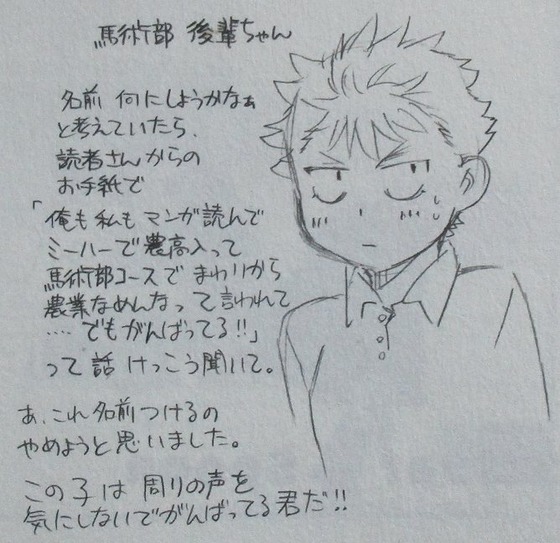 馬術部 後輩ちゃん
名前 何にしようかなぁ
と考えていたら、
読者さんからの
お手紙で
「俺も私もマンガ読んで
ミーハーで農高入って
馬術部コースでまわりから
農業なめんなって言われて
…でもがんばってる!!」
って話けっこう聞いて。
あ、これ名前つけるの
やめようと思いました。
この子は周りの声を
気にしないでがんばってる君だ!!